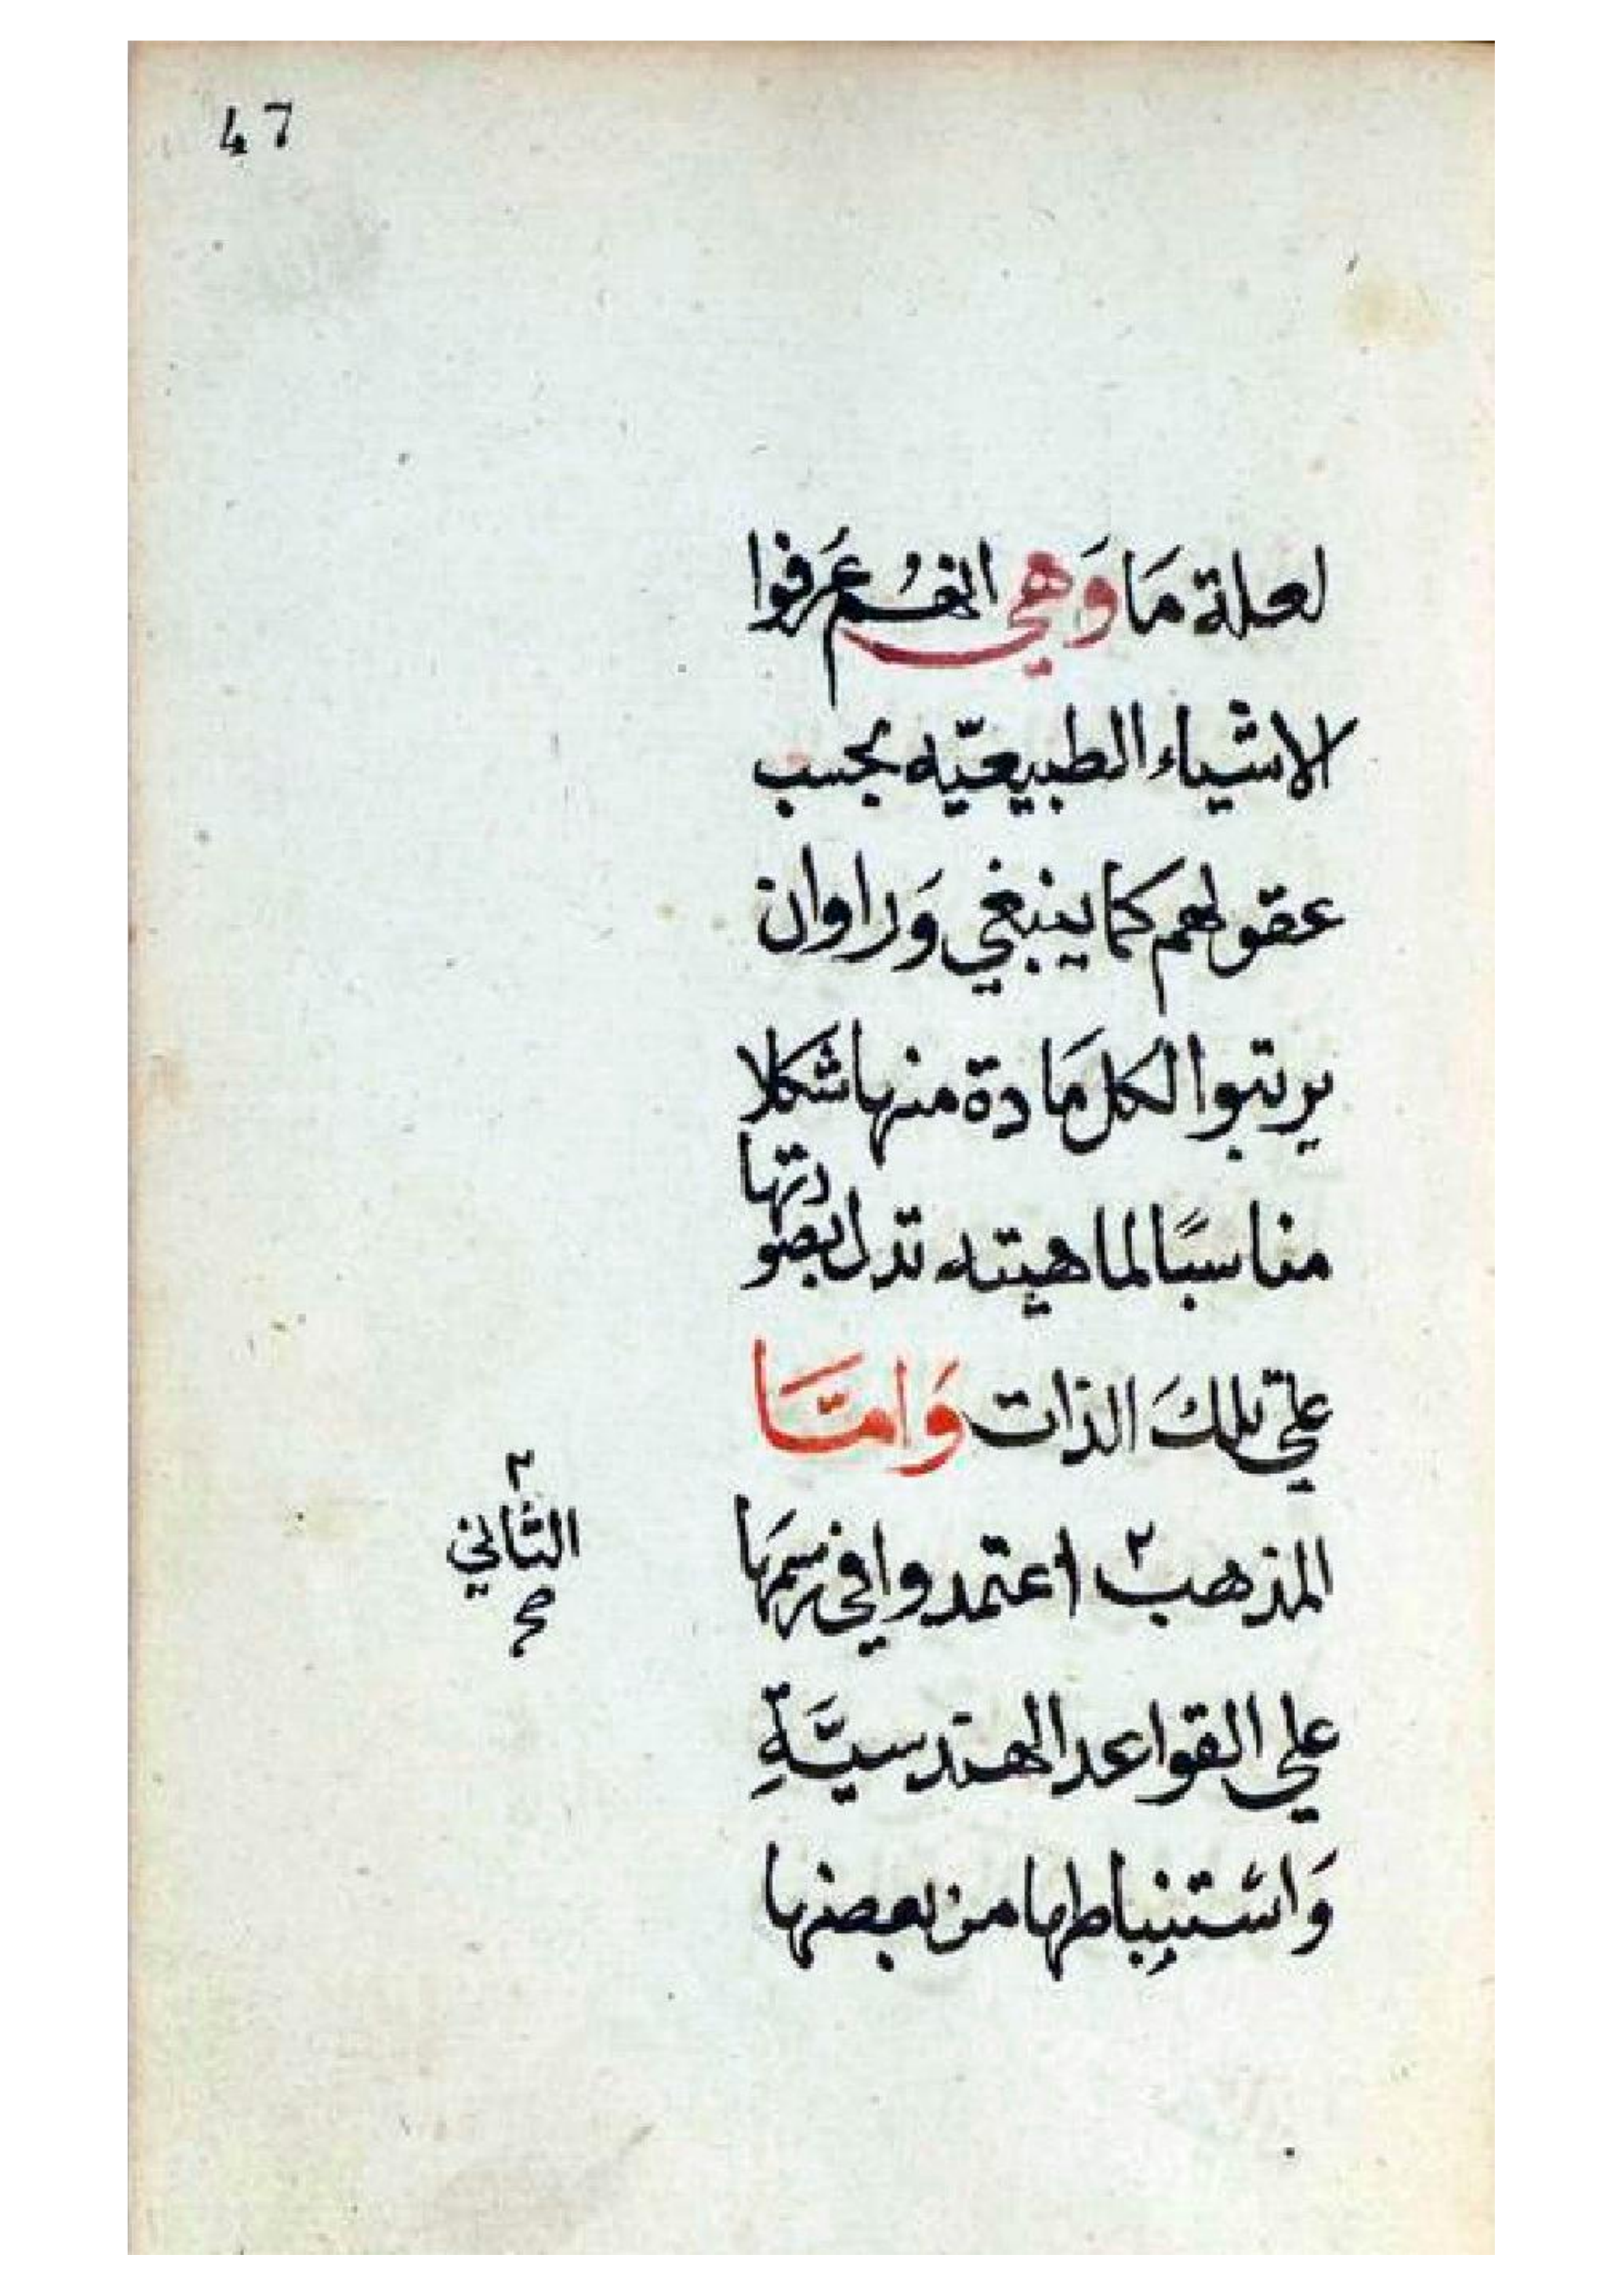 47
لعلة مَا وَهي انهُم عَرفوا
الاشياء الطبيعيّه بحسب
عقولهم كما ينبغي وَراوان
يرتبوا لكل مَادة منها شكلا
مناسبًا لماهيته تدل بصورتها
علي تلكَ الذات وَامَّا
المذهب ٢ اعتمدوا في رسمَها
علي القواعد الهندسيَّةِ
وَاستنبِاطها من بعضها
٢
الثاني
صح